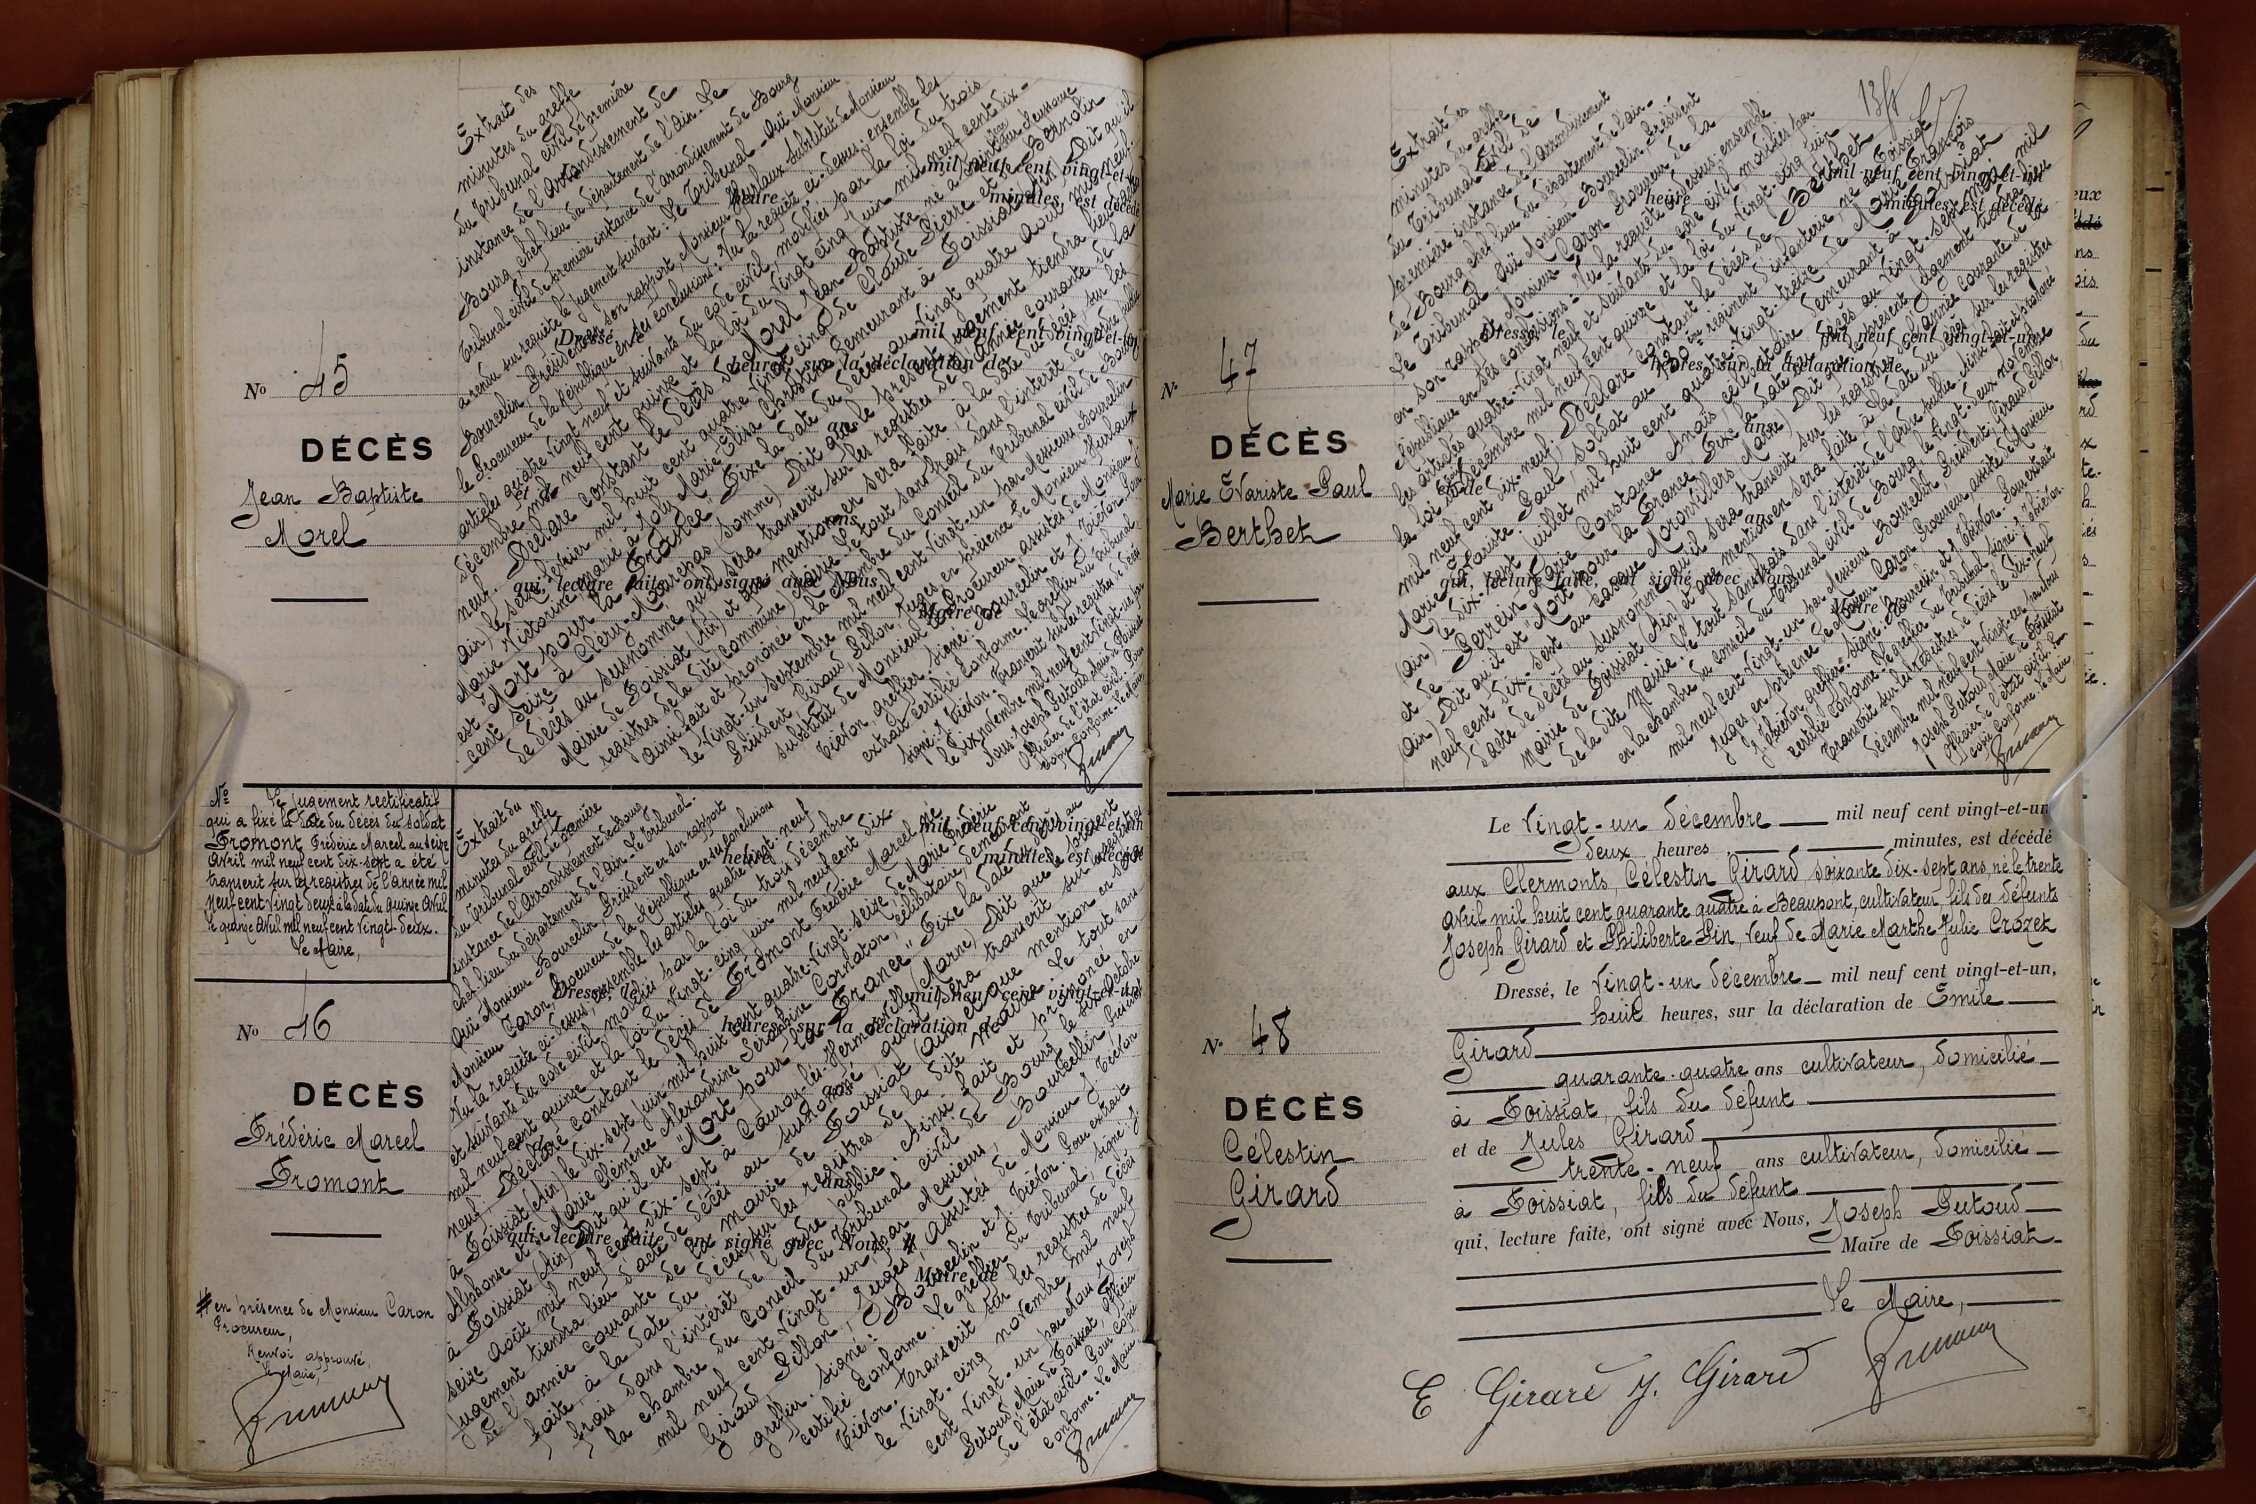 No 45
DÉCÈS
Jean Baptiste
Morel
Extrait des
minutes du greffe
du Tribunal civil de première
instance de l'arrondissement de
Bourg, chef lieu du département de l'Ain. Le
Tribunal civil de première instance de l'arrondissement de Bourg
a rendu sur requête le jugement suivant: Le Tribunal. Ouï Monsieur
Bourcelin, Président en son rapport, Monsieur Hurlaux substitut de Monsieur
le Procureur de la République en ses conclusions: Vu la requête ci-dessus, ensemble les
articles quatre vingt neuf et suivants du code civil, modifiés par la loi du trois
décembre mil neuf cent quinze et la loi du vingt cinq Juin mil neuf cent dix-
neuf. Déclare constant le décès de Morel Jean Baptiste né à
Ain, le seize février mil huit cent quatre vingt cinq de Claude Pierre et de Bernolin
Marie Victorine, marié à Joly Marie Elisa Christine demeurant à Foissiat (Ain) Dit qu'il
est "Mort pour la France" Fixe la date du décès au vingt quatre août mil neuf
cent seize à Cléry-Maurepas (Somme) Dit que le présent jugement tiendra lieu d'acte
de décès au susnommé, qu'il sera transcrit sur les registres de l'année courante de la
Mairie de Foissiat (Ain) et que mention en sera faite, à la date du décès, sur les
registres de la dite commune, Mairie. Le tout sans frais dans l'intérêt de l'ordre public
ainsi fait et prononcé en la chambre du Conseil du Tribunal civil de Bourg
le vingt-un septembre mil neuf cent vingt-un par Messieurs Bourcelin
Président, Giraud, Sillon, Juges en présence de Monsieur Hurlaux
substitut de Monsieur le Procureur assistés de Monsieur J.
Tiévon, greffier. Signé: Bourcelin et J. Tiévon. Pour
extrait certifié conforme. Le greffier du Tribunal,
signé: J. Tiévon. Transcrit sur les registres de décès
le dix novembre mil neuf cent vingt-un par
Nous Joseph Putoud Maire de Foissiat
Officier de l'état civil. Pour
copie conforme. Le Maire
mil neuf cent vingt-et-un
heure minutes, est décédé
Dressé, le mil neuf cent vingt-et-un
heures, sur la déclaration de
et de
ans
qui, lecture faite, ont signé avec Nous,
Maire de
No Le jugement rectificatif
qui a fixé la date du décès du soldat
Fromont Frédéric Marcel au seize
Avril mil neuf cent dix-sept a été
transcrit sur les registres de l'année mil
neuf cent vingt deux à la date du quinze Avril
le quinze Avril mil neuf cent vingt-deux.
Le Maire,
No 46
DÉCÈS
Frédéric Marcel
Fromont
# en présence de Monsieur Caron
Procureur,
Renvoi approuvé,
Le Maire,
Extrait du
minutes du greffe
du Tribunal civil de première
instance de l'Arrondissement de Bourg
chef-lieu du département de l'Ain. Le Tribunal.
Ouï Monsieur Bourcelin Président en son rapport
Monsieur Caron Procureur de la République en ses conclusions
Vu la requête ci-dessus, ensemble les articles quatre vingt-neuf
et suivants du code civil modifiés par la loi du trois décembre
mil neuf cent quinze et la loi du vingt-cinq juin mil neuf cent dix
neuf. Déclare constant le décès de Fromont Frédéric Marcel né
à Foissiat (Ain) le dix-sept juin mil huit cent quatre-vingt-seize de Marie Frédéric
Alphonse et de Marie Clémence Alexandrine Séraphine Cornaton, célibataire, demeurant
à Foissiat (Ain) Dit qu'il est "Mort pour la France" Fixe la date du décès au
seize août mil neuf cent dix-sept à Cauroy-lès-Hermonville (Marne) Dit que le présent
jugement tiendra lieu d'acte de décès au susnommé, qu'il sera transcrit sur les registres
de l'année courante de la Mairie de Foissiat (Ain) et que mention en sera
faite, à la date du décès sur les registres de la dite Mairie. Le tout sans
frais dans l'intérêt de l'ordre public. Ainsi fait et prononcé en
la chambre du Conseil du Tribunal civil de Bourg le six octobre
mil neuf cent vingt-un, par Messieurs Bourcelin, Président
Giraud Sillon, Juges, # Assistés de Monsieur J. Tiévon
greffier. Signé: Bourcelin et J. Tiévon. Pour extrait
certifié conforme. Le greffier du Tribunal, signé: J.
Tiévon. Transcrit sur les registres de décès
le vingt-cinq novembre mil neuf
cent vingt-un par Nous Joseph
Putoud Maire de Foissiat, Officier
de l'état civil. Pour copie
conforme. Le Maire
mil neuf cent vingt-et-un
heure minutes est décédé
Dressé, le mil neuf cent vingt-et-un
heures, sur la déclaration de
ans
qui, lecture faite, ont signé avec Nous,
Maire de
No 47
DÉCÈS
Marie Evariste Paul
Berthet
Extrait des
minutes du greffe
du Tribunal Civil de
première instance de l'arrondissement
de Bourg chef lieu du département de l'Ain.
Le Tribunal. Ouï Monsieur Bourcelin, Président
en son rapport, Monsieur Caron Procureur de la
République en ses conclusions. Vu la requête ci-dessus, ensemble
les articles quatre-vingt neuf et suivants du code civil modifiés par
la loi du trois décembre mil neuf cent quinze et la loi du vingt-cinq juin
mil neuf cent dix-neuf. Déclare constant le décès de Berthet
Marie Evariste Paul, soldat au 130ème régiment d'infanterie, né à Foissiat
(Ain) le dix-sept juillet mil huit cent quatre-vingt-treize de Marie François
et de Perrein Marie Constance Anaïs célibataire demeurant à Foissiat
(Ain) Dit qu'il est "Mort pour la France" Fixe la date du décès au vingt-sept Mai mil
neuf cent dix-sept au Casque Moronvillers (Marne) Dit que le présent jugement tiendra lieu
d'acte de décès au susnommé, qu'il sera transcrit sur les registres de l'année courante de la
Mairie de Foissiat (Ain) et que mention en sera faite à la date du décès sur les registres
de la dite Mairie. Le tout sans frais dans l'intérêt de l'ordre public. Ainsi fait et prononcé
en la chambre du conseil du Tribunal civil de Bourg le vingt-deux novembre
mil neuf cent vingt-un par Messieurs Bourcelin Président, Giraud Sillon,
Juges en présence de Monsieur Caron Procureur, assistés de Monsieur
J. Tiévon greffier. Signé: Bourcelin et J. Tiévon. Pour extrait
certifié conforme. Le greffier du Tribunal, signé: J. Tiévon.
Transcrit sur les registres de décès le dix-neuf
décembre mil neuf cent vingt-un par nous
Joseph Putoud Maire de Foissiat
Officier de l'état civil. Pour
copie conforme. Le Maire,
mil neuf cent vingt-et-un
heure minutes, est décédé
Dressé, le mil neuf cent vingt-et-un
heures, sur la déclaration de
ans
et de
ans
qui, lecture faite, ont signé avec Nous,
Maire de
No 48
DÉCÈS
Célestin
Girard
Le vingt-un décembre mil neuf cent vingt-et-un
deux heures minutes, est décédé
aux Clermonts, Célestin Girard soixante dix-sept ans, né le trente
avril mil huit cent quarante quatre à Beaupont, cultivateur, fils des défunts
Joseph Girard et Philiberte Pin, veuf de Marie Marthe Julie Crozet
Dressé, le vingt-un décembre mil neuf cent vingt-et-un,
huit heures, sur la déclaration de Emile
Girard
quarante-quatre ans cultivateur, domicilié
à Foissiat, fils du défunt
et de Jules Girard
trente-neuf ans cultivateur, domicilié
à Foissiat, fils du défunt
qui, lecture faite, ont signé avec Nous, Joseph Putoud
Maire de Foissiat
Le Maire,
E Girard J. Girard